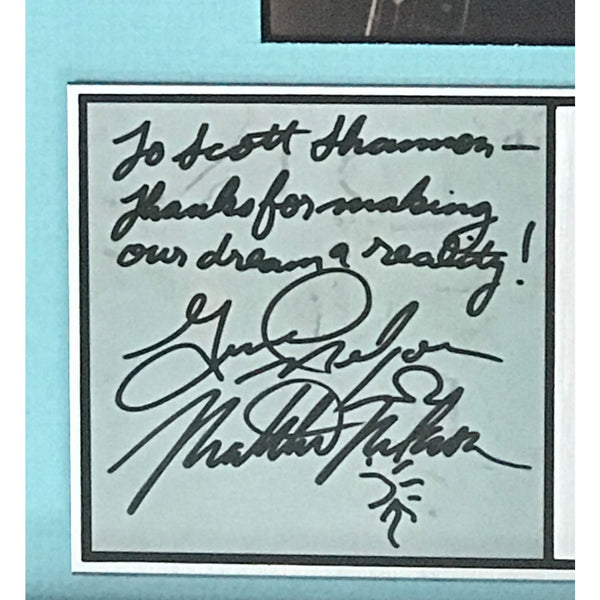 To Scott Shannon —
Thanks for making
our dream a reality!
Gunnar Nelson
Matthew Nelson